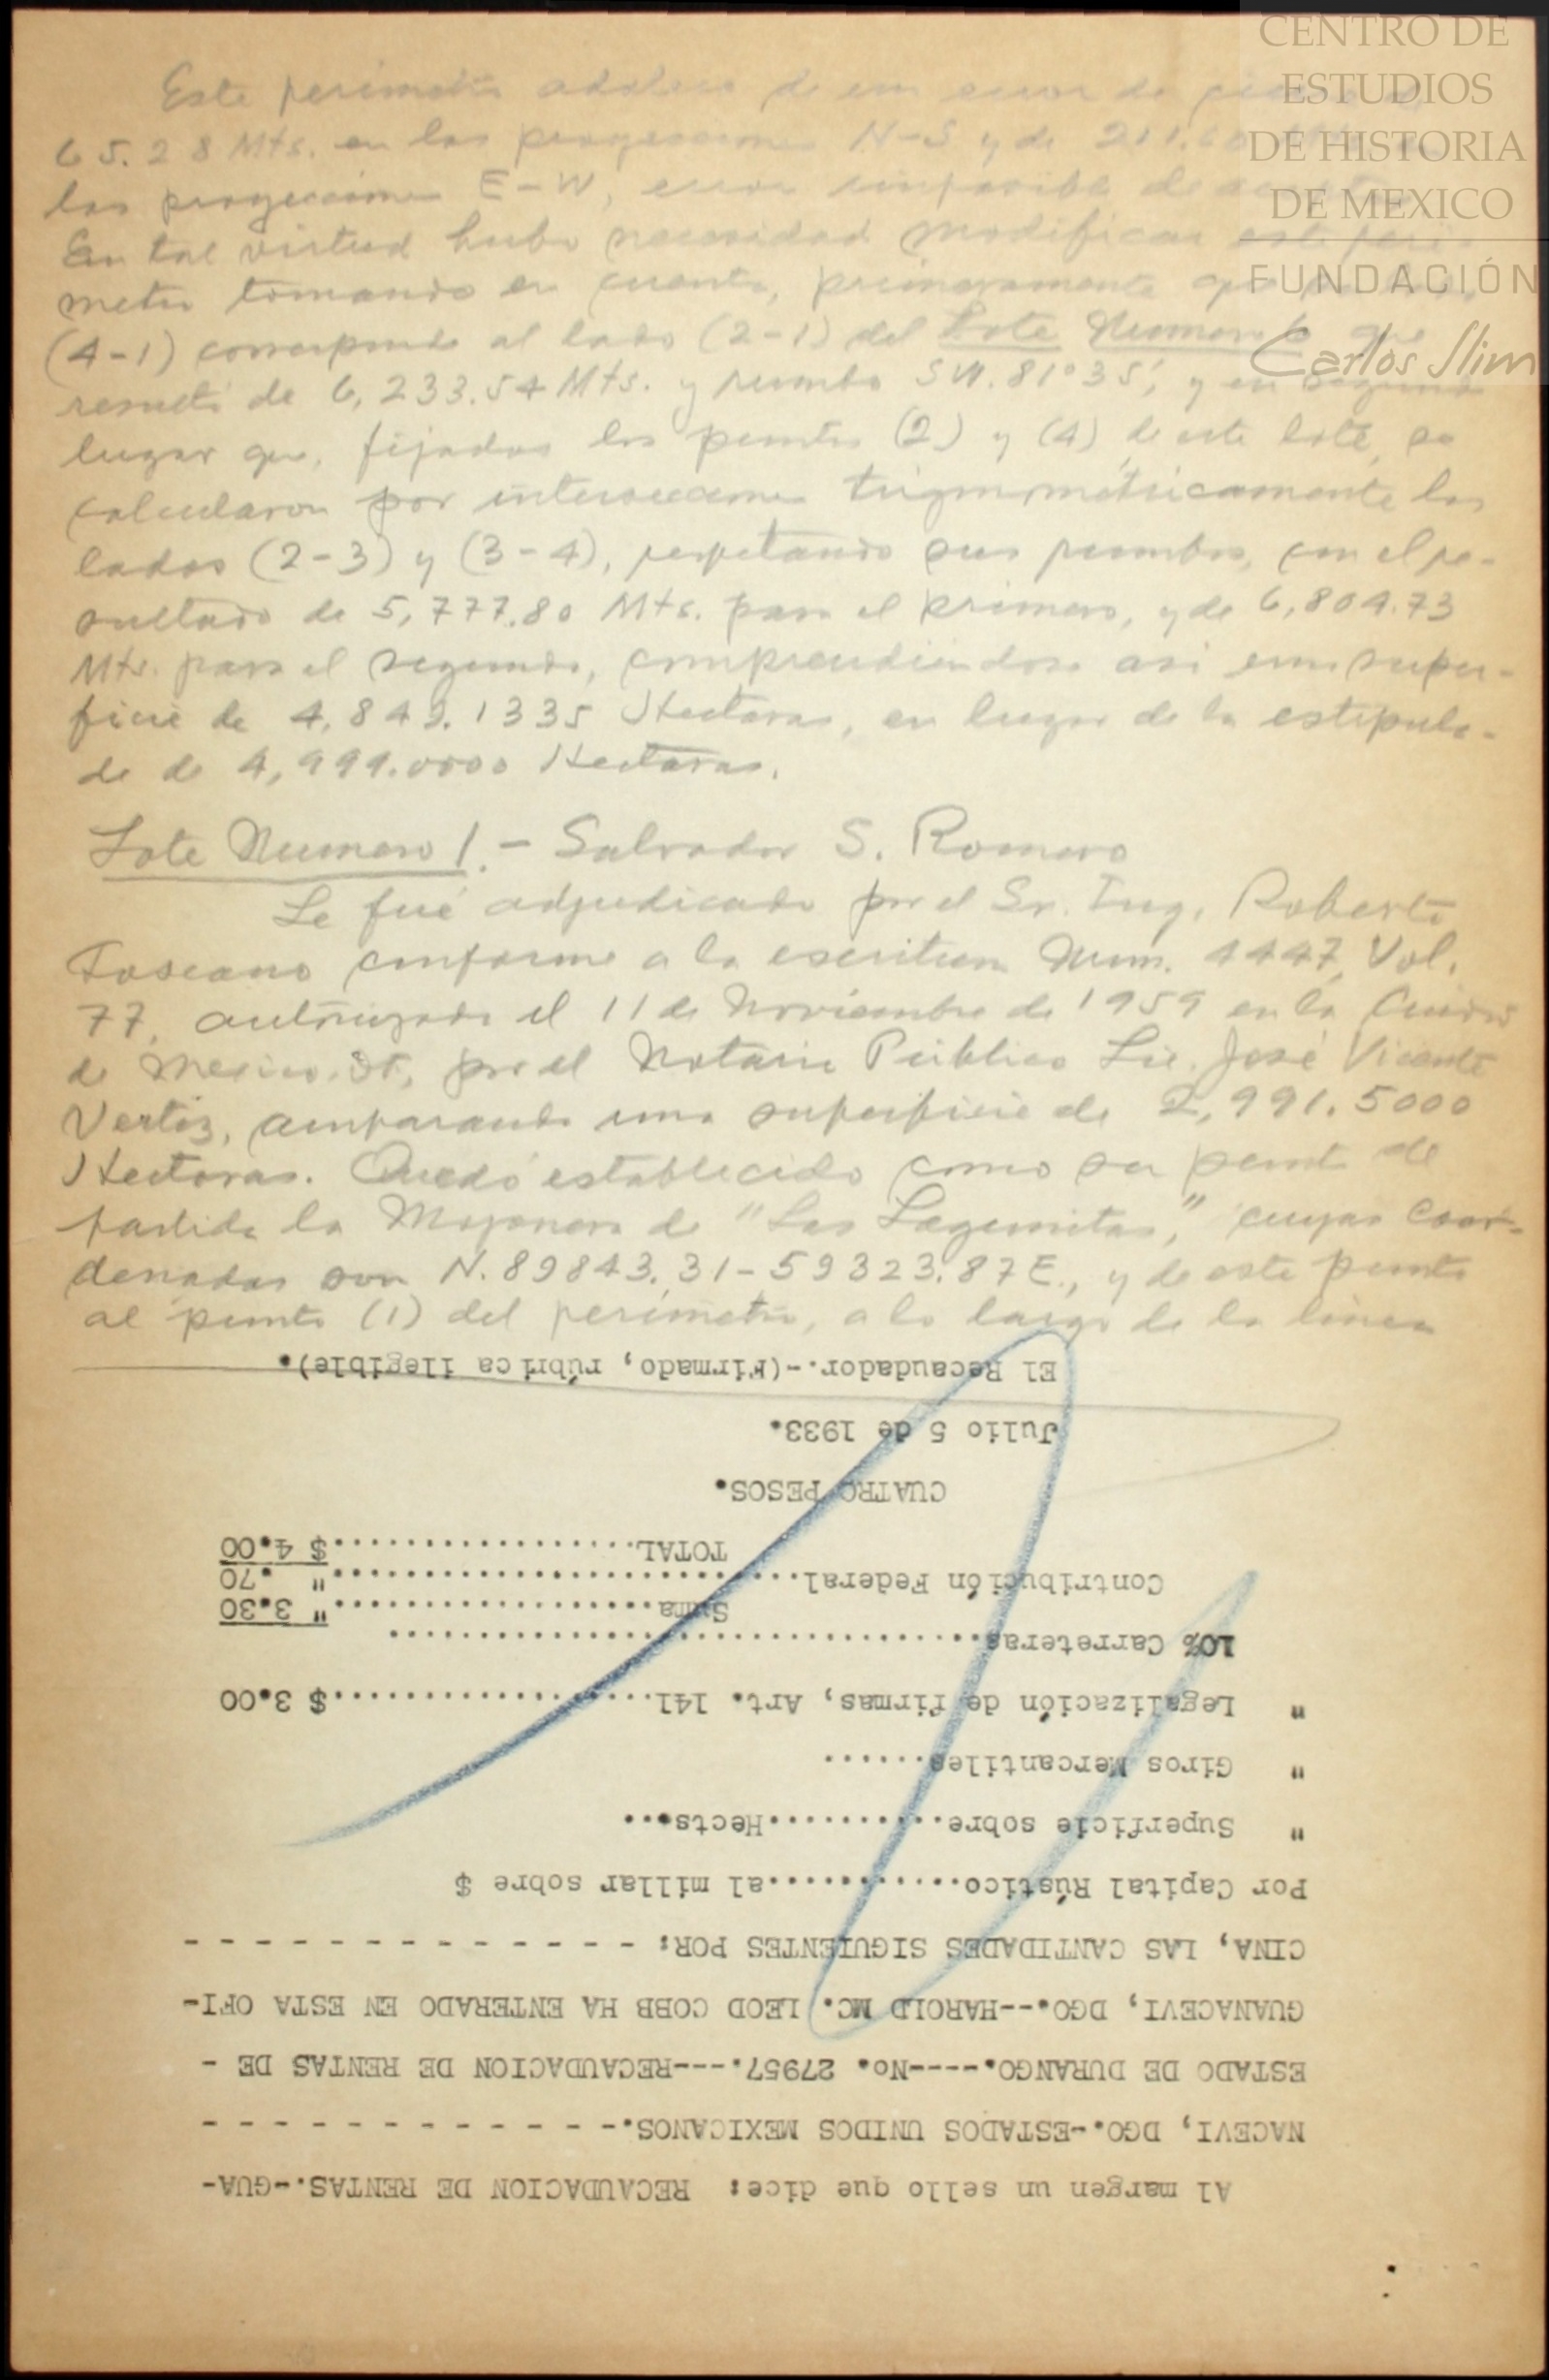 CENTRO DE
ESTUDIOS
DE HISTORIA
DE MEXICO
FUNDACIÓN
Carlos Slim
Este perimetro adolece de un error de
65.28 Mts. en las proyecciones N-S y de 211.60
las proyecciones E-W, error imposible de
En tal virtud hubo necesidad modificar este perí-
metro tomando en cuenta, primeramente que
(4-1) corresponde al lado (2-1) del Lote Numero 6 que
resultó de 6,233.54 Mts. y rumbo SW.81°35', y en segundo
lugar que, fijados los puntos (2) y (4) de este lote, se
calcularon por intersecciones trigonométricamente los
lados (2-3) y (3-4), respetando sus rumbos, con el re-
sultado de 5,777.80 Mts. para el primero, y de 6,804.73
Mts. para el segundo, comprendiéndose asi una super-
ficie de 4,849.1335 Hectáras, en lugar de la estipula-
da de 4,999.0000 Hectáras.
Lote Numero 1.- Salvador S. Romero
Le fué adjudicado por el Sr. Ing. Roberto
Toscano conforme a la escritura Num. 4447, Vol.
77, autorizada el 11 de Noviembre de 1959 en la Ciudad
de Mexico, DF, por el Notario Público Lic. José Vicente
Vertiz, amparando una superficie de 2,991.5000
Hectáras. Quedó establecido como su punto de
partida la Mojonera de "Las Lagunitas," cuyas Coor-
denadas son N.89843.31-59323.87E., y de este punto
al punto (1) del perimetro, a lo largo de la línea
Al margen un sello que dice: RECAUDACION DE RENTAS.-GUA-
NACEVI, DGO.-ESTADOS UNIDOS MEXICANOS.- - - - - - - - - - - - - -
ESTADO DE DURANGO.----No. 27957.---RECAUDACION DE RENTAS DE -
GUANACEVI, DGO.--HAROLD MC. LEOD COBB HA ENTERADO EN ESTA OFI-
CINA, LAS CANTIDADES SIGUIENTES POR: - - - - - - - - - - - - - -
Por Capital Rústico............al millar sobre $
" Superficie sobre...........Hects...
" Giros Mercantiles......
" Legalización de firmas, Art. 141...................$ 3.00
10% Carreteras..................................
Suma..................." 3.30
Contribución Federal..........................." .70
TOTAL..................$ 4.00
CUATRO PESOS.
Julio 5 de 1933.
El Recaudador.-(Firmado, rúbrica ilegible).